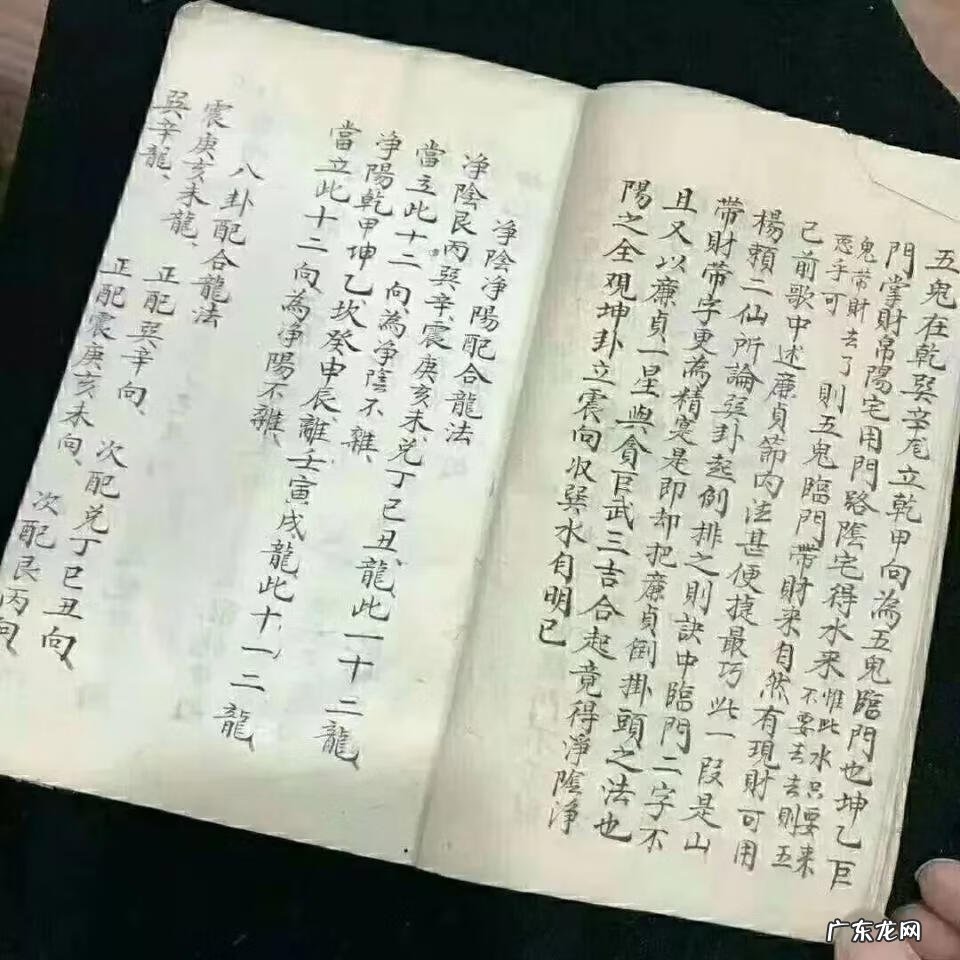 五鬼在乾巽辛龙立乾甲向為五鬼臨門也坤乙巨
門掌財帛陽宅用門路陰宅得水來惟此水只要來
不要去去則五
鬼帶財去了則五鬼臨門帶財來自然有現財可用
惡乎可
已前歌中述廉貞節內注甚便捷最巧此一段是山
楊賴二仙所論巽卦起例排之則訣中臨門二字不
帶財帶字更為精寔是即却把廉貞倒掛頭之法也
且又以廉貞一星與貪巨武三吉合起竟得淨陰淨
陽之全观坤卦立震向収巽水自明已
净陰净陽配合龍法
净陰艮丙巽辛震庚亥未兑丁巳丑龍此一十二龍
當立此十二向為净陰不雜
净陽乾甲坤乙坎癸申辰離壬寅戌龍此十一二龍
當立此十二向為净陽不雜
八卦配合龍法
震庚亥未龍、正配巽辛向、次配兑丁巳丑向
巽辛龍、正配震庚亥未向、次配艮丙向
广东龙网